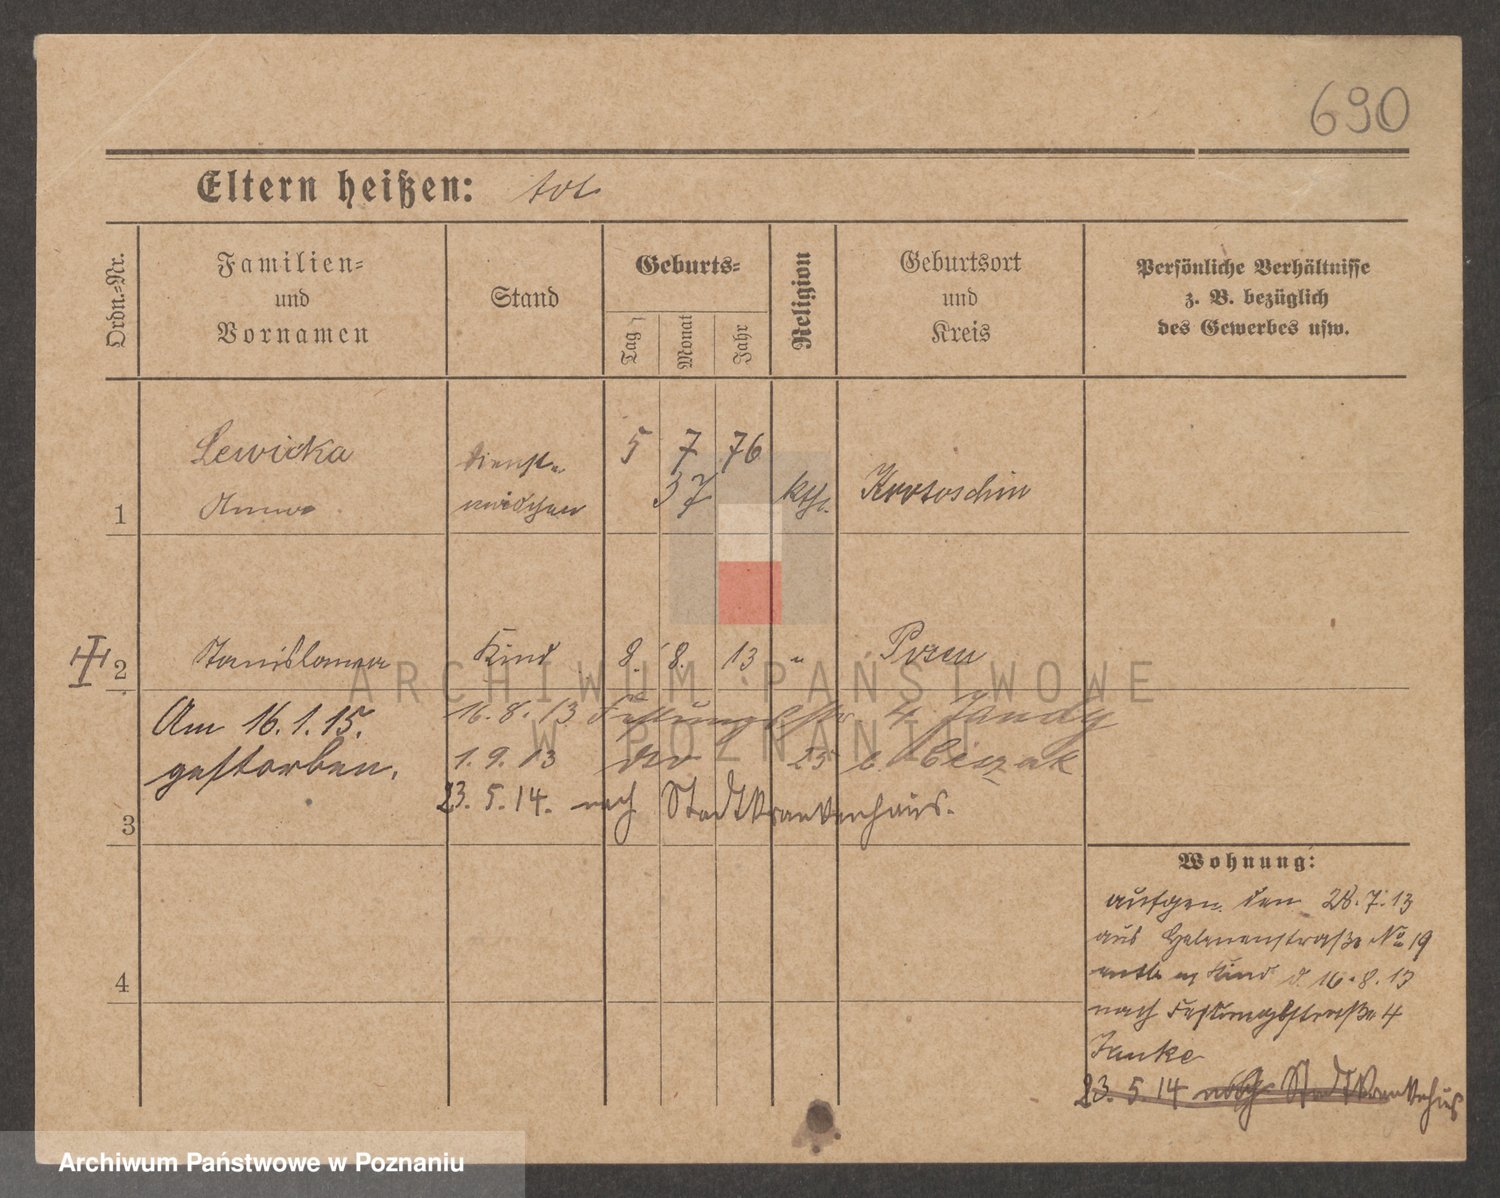 690
Eltern heißen: tot
Ordn.-Nr.
Familien-
und
Vornamen
Stand
Geburts-
Tag
Monat
Jahr
Religion
Geburtsort
und
Kreis
Persönliche Verhältnisse
z. B. bezüglich
des Gewerbes usw.
Lewicka
Dienst-
5 7 76
1 Anna
mädchen
37
kth.
Krotoschin
2 Stanislawa
Kind
8. 8. 13
"
Posen
ARCHIWUM PAŃSTWOWE
W POZNANIU
Am 16.1.15.
gestorben.
16.8.13 Festungsstr 4
1.9.13
25 b.
23.5.14. nach Stadtkrankenhaus.
3
4
Wohnung:
aufgen. den 28.7.13
aus Helenenstraße No 19
Kind d. 16.8.13
nach Festungsstraße 4
Janke
23.5.14 nach Stadtkrankenhaus
Archiwum Państwowe w Poznaniu